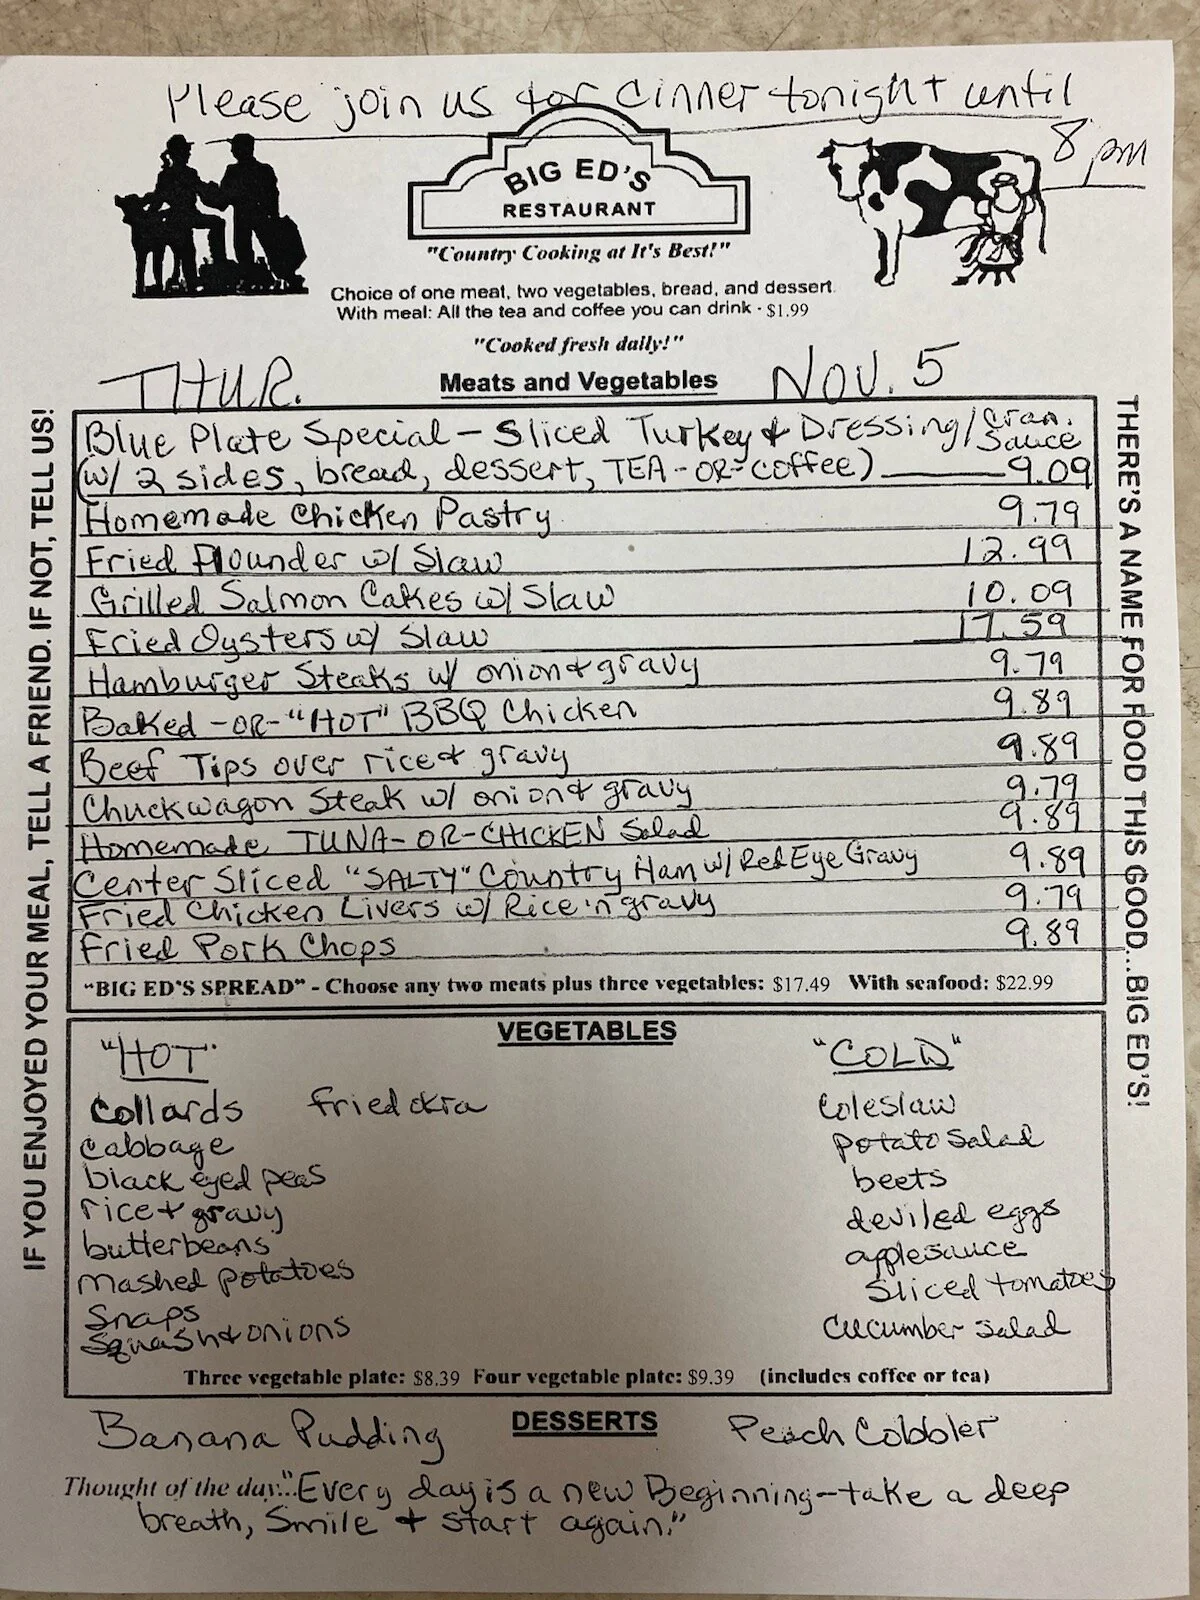 Please join us for dinner tonight until
8 pm
BIG ED'S
RESTAURANT
"Country Cooking at It's Best!"
Choice of one meat, two vegetables, bread, and dessert.
With meal: All the tea and coffee you can drink - $1.99
"Cooked fresh daily!"
THUR.
Meats and Vegetables
NOV. 5
IF YOU ENJOYED YOUR MEAL, TELL A FRIEND. IF NOT, TELL US!
THERE'S A NAME FOR FOOD THIS GOOD...BIG ED'S!
Blue Plate Special - Sliced Turkey & Dressing/Cran. Sauce
(w/ 2 sides, bread, dessert, TEA-OR-coffee) 9.09
Homemade Chicken Pastry 9.79
Fried Flounder w/ Slaw 12.99
Grilled Salmon Cakes w/ Slaw 10.09
Fried Oysters w/ Slaw 17.59
Hamburger Steaks w/ onion & gravy 9.79
Baked -OR- "HOT" BBQ Chicken 9.89
Beef Tips over rice & gravy 9.89
Chuckwagon Steak w/ onion & gravy 9.79
Homemade TUNA-OR-CHICKEN Salad 9.89
Center Sliced "SALTY" Country Ham w/ Red Eye Gravy 9.89
Fried Chicken Livers w/ Rice 'n gravy 9.79
Fried Pork Chops 9.89
"BIG ED'S SPREAD" - Choose any two meats plus three vegetables: $17.49 With seafood: $22.99
VEGETABLES
"HOT"
Collards fried okra
cabbage
black eyed peas
rice & gravy
butterbeans
mashed potatoes
Snaps
Squash & onions
"COLD"
Coleslaw
potato salad
beets
deviled eggs
applesauce
Sliced tomatoes
cucumber salad
Three vegetable plate: $8.39 Four vegetable plate: $9.39 (includes coffee or tea)
DESSERTS
Banana Pudding
Peach Cobbler
Thought of the day..."Every day is a new Beginning - take a deep
breath, Smile & start again."